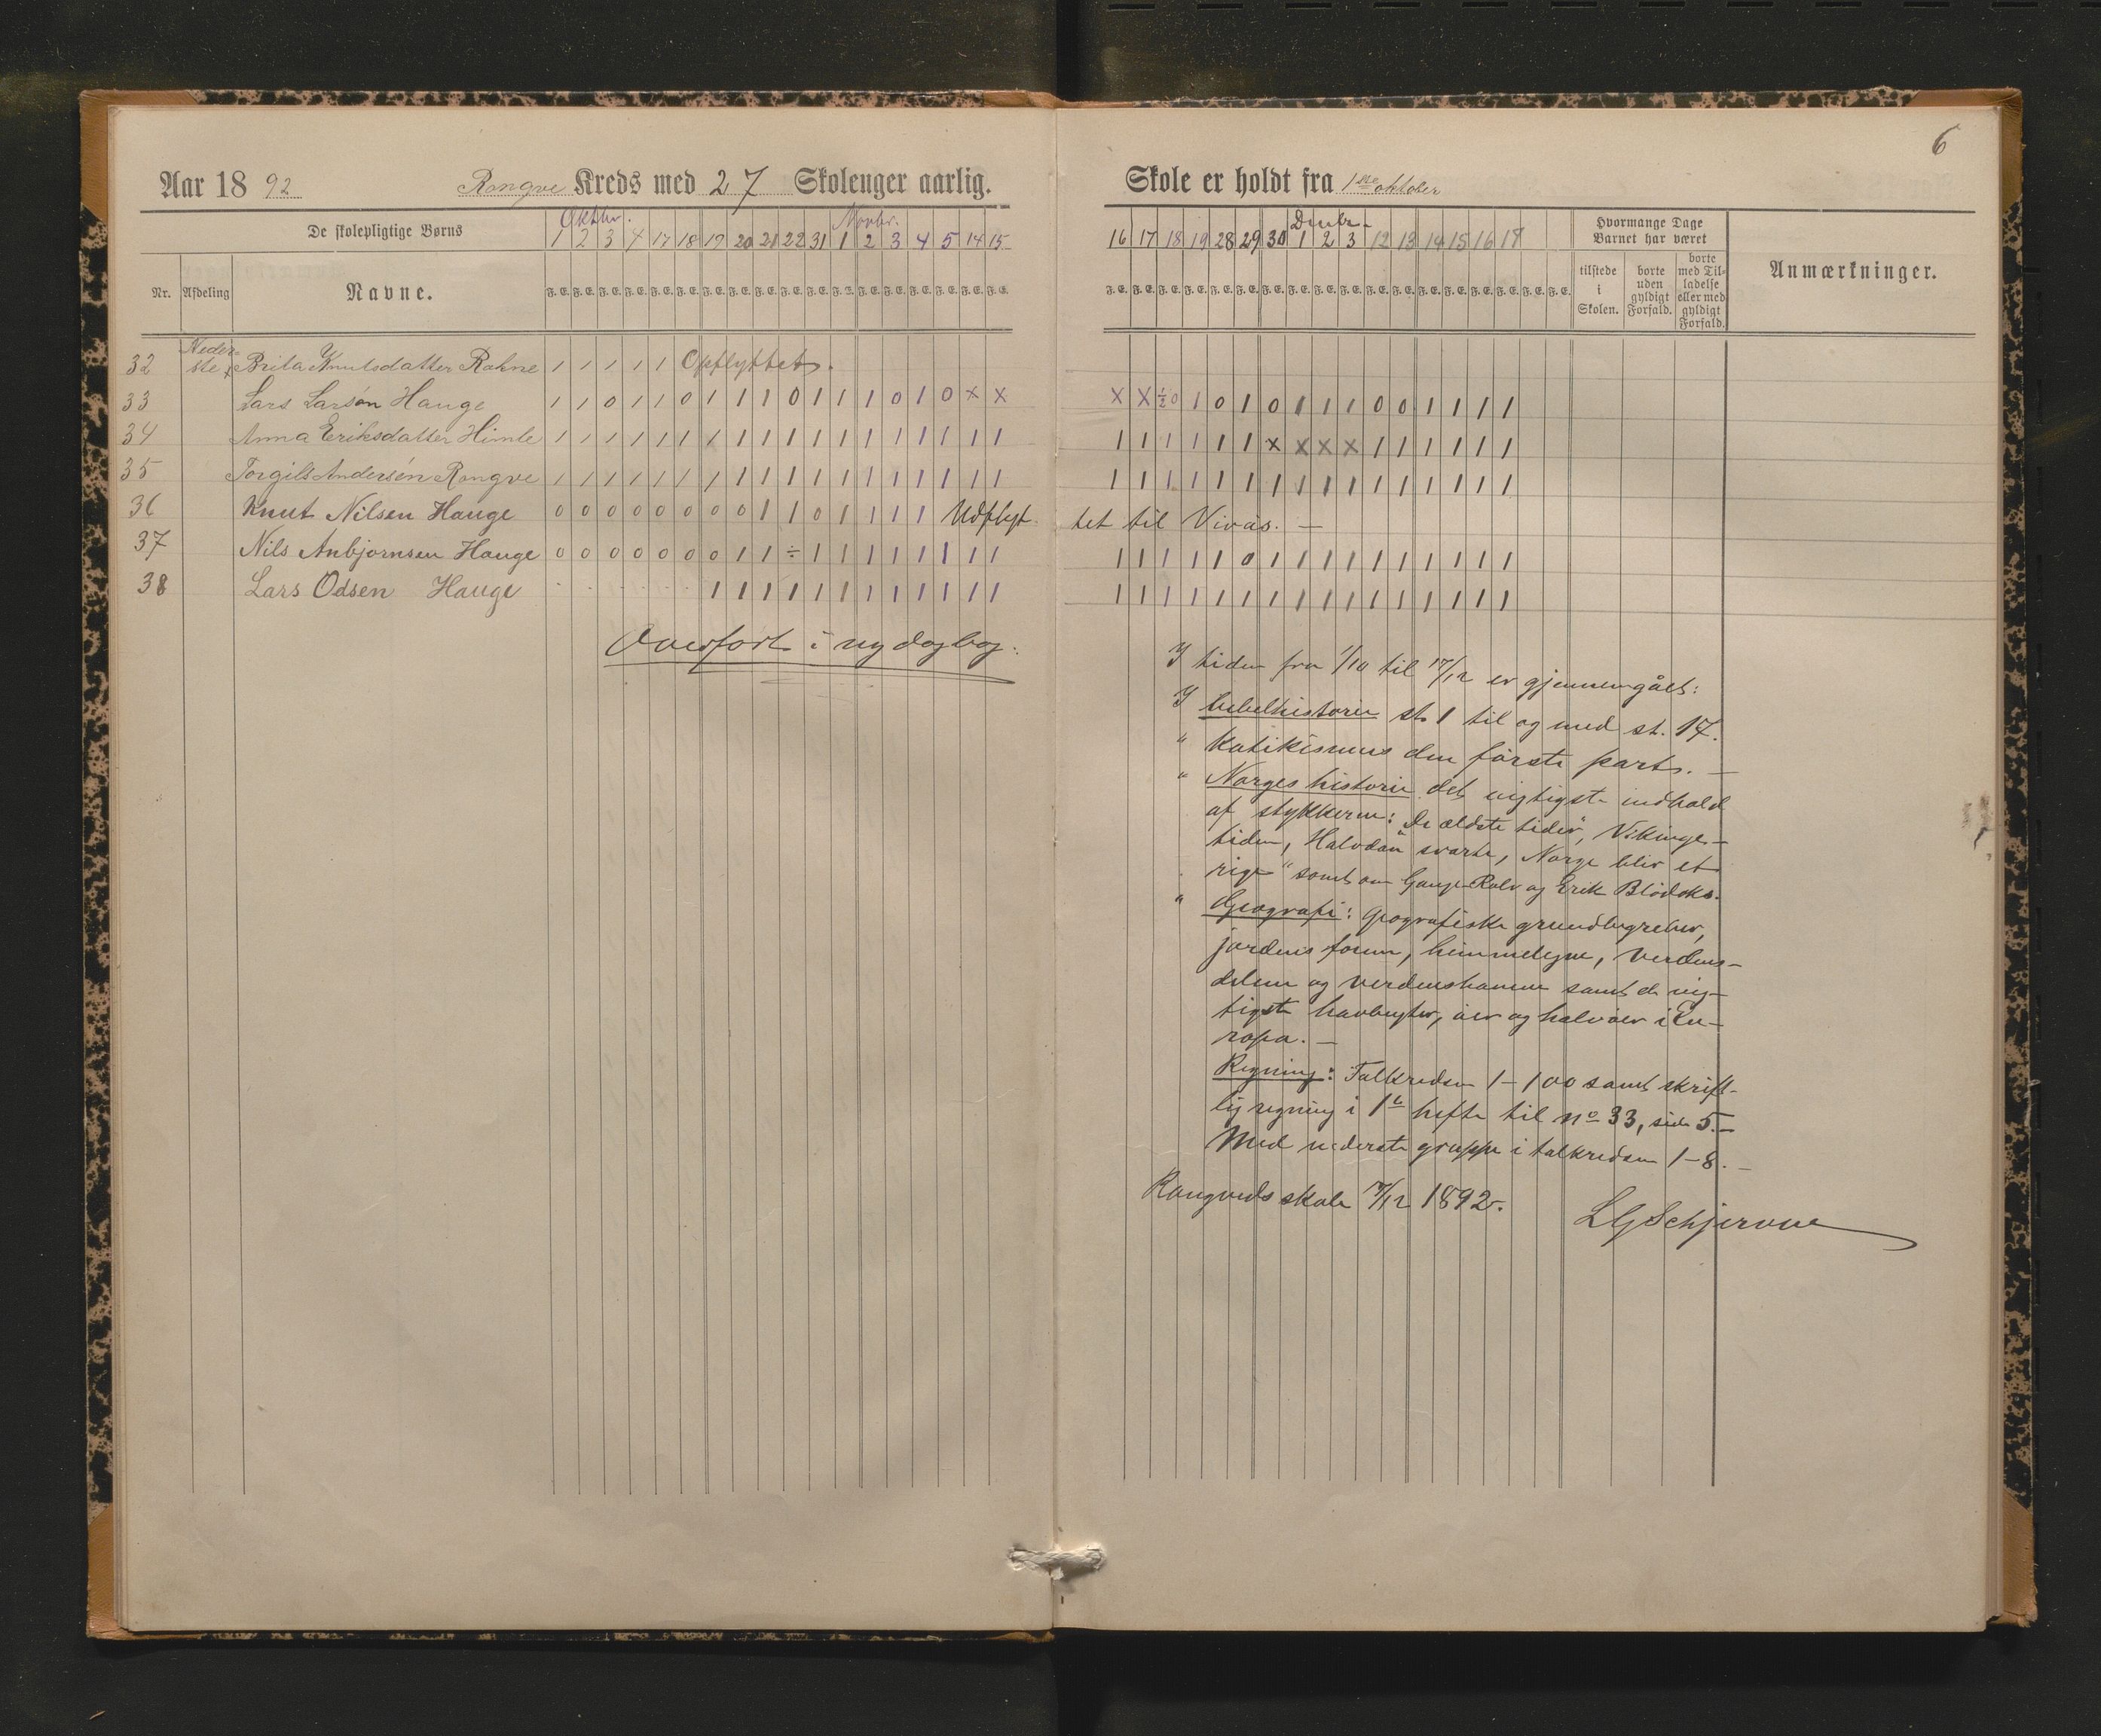 Aar 18 92 Rongve Kreds med 27 Skoleuger aarlig.
De skolepligtige Børns
Oktbr. Novbr.
1 2 3 4 17 18 19 20 21 22 31 1 2 3 4 5 14 15
Nr. Afdeling Navne.
F. E. F. E. F. E. F. E. F. E. F. E. F. E. F. E. F. E. F. E. F. E. F. E. F. E. F. E. F. E. F. E. F. E. F. E.
32 Neder-
ste Brita Knutsdatter Rokne 1 1 1 1 1 Opflyttet.
33 Lars Larsen Hauge 1 1 0 1 1 0 1 1 1 0 1 1 1 0 1 0 x x
34 Anna Eriksdatter Himle 1 1 1 1 1 1 1 1 1 1 1 1 1 1 1 1 1 1
35 Torgils Andersen Rongve 1 1 1 1 1 1 1 1 1 1 1 1 1 1 1 1 1 1
36 Knut Nilsen Hauge 0 0 0 0 0 0 0 0 1 1 0 1 1 1 1 Udflyt-
37 Nils Anbjørnsen Hauge 0 0 0 0 0 0 0 1 1 ÷ 1 1 1 1 1 1 1 1
38 Lars Odsen Hauge 1 1 1 1 1 1 1 1 1 1 1 1
Overført i ny dagbog.
6
Skole er holdt fra 1ste oktober
Decbr.
16 17 18 19 28 29 30 1 2 3 12 13 14 15 16 17
Hvormange Dage
Barnet har været
tilstede
i
Skolen.
borte
uden
gyldigt
Forfald.
borte
med Til-
ladelse
eller med
gyldigt
Forfald.
Anmærkninger.
F. E. F. E. F. E. F. E. F. E. F. E. F. E. F. E. F. E. F. E. F. E. F. E. F. E. F. E. F. E. F. E. F. E. F. E.
x x ½0 1 0 1 0 1 1 1 0 0 1 1 1 1
1 1 1 1 1 1 x x x x 1 1 1 1 1 1
1 1 1 1 1 1 1 1 1 1 1 1 1 1 1 1
tet til Vivås. —
1 1 1 1 1 0 1 1 1 1 1 1 1 1 1 1
1 1 1 1 1 1 1 1 1 1 1 1 1 1 1 1
I tiden fra 1/10 til 17/12 er gjennemgået:
I bibelhistorie st. 1 til og med st. 17.
" Katikismus den første part. —
" Norges historie det vigtigste indhold
af stykkerne: "De ældste tider, Vikinge-
tiden, Halvdan svarte, Norge blir et
rige" samt om Gange-Rolv og Erik Blodøks.
" Geografi: Geografiske grundbegreber,
jordens form, himmelegne, verdens-
delene og verdenshavene samt de vig-
tigste havbugter, øer og halvøer i Eu-
ropa. —
Regning: Talkredsen 1-100 samt skrift-
lig regning i 1ste hefte til no 33, side 5. —
Med nederste gruppe i talkredsen 1-8. —
Rongveds skole 17/12 1892.
LGSchjervue